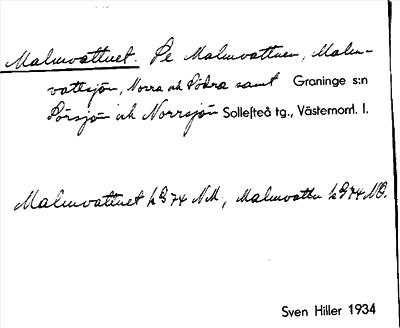 Malmvattnet. Se Malmvattnen, Malm-
vattsjön, Norra och Södra samt Graninge s:n
Sörsjön och Norrsjön Sollefteå tg., Västernorrl. l.
Malmvattnet k G 74 NM, Malmvattn k G 74 NO.
Sven Hiller 1934